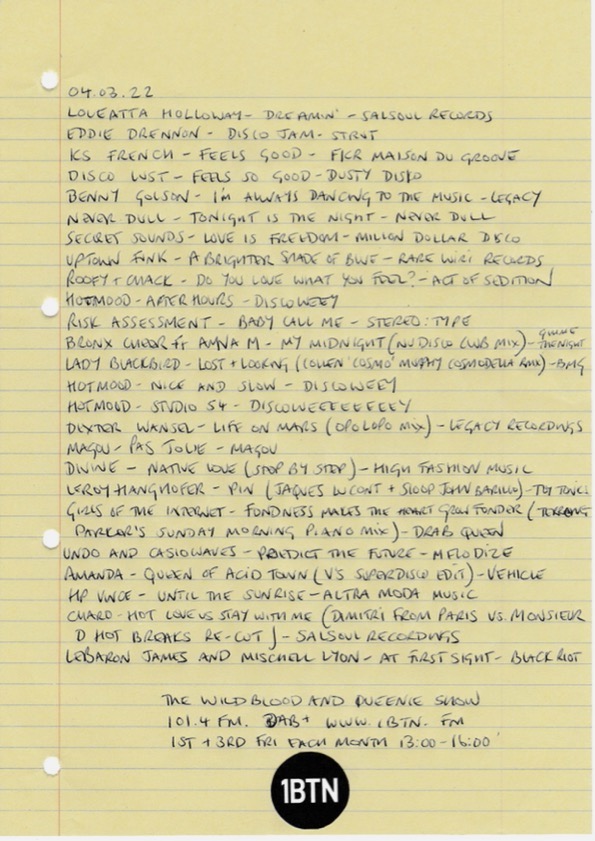 04.03.22
LOVEATTA HOLLOWAY - DREAMIN' - SALSOUL RECORDS
EDDIE DRENNON - DISCO JAM - STRUT
KS FRENCH - FEELS GOOD - FKR MAISON DU GROOVE
DISCO LUST - FEELS SO GOOD - DUSTY DISKO
BENNY GOLSON - I'M ALWAYS DANCING TO THE MUSIC - LEGACY
NEVER DULL - TONIGHT IS THE NIGHT - NEVER DULL
SECRET SOUNDS - LOVE IS FREEDOM - MILLION DOLLAR DISCO
UPTOWN FUNK - A BRIGHTER SHADE OF BLUE - RARE WIRI RECORDS
ROOFY + CHACK - DO YOU LOVE WHAT YOU FEEL? - ACT OF SEDITION
HOTMOOD - AFTER HOURS - DISCOWEEY
RISK ASSESSMENT - BABY CALL ME - STEREO:TYPE
BRONX CHEER ft ANNA M - MY MIDNIGHT (NUDISCO CLUB MIX) - GIMME THE NIGHT
LADY BLACKBIRD - LOST + LOOKING (COLLEEN 'COSMO' MURPHY COSMODELICA RMX) - BMG
HOTMOOD - NICE AND SLOW - DISCOWEEY
HOTMOOD - STUDIO 54 - DISCOWEEEEEEEY
DEXTER WANSEL - LIFE ON MARS (OPOLOPO MIX) - LEGACY RECORDINGS
MAGOU - PAS JOLIE - MAGOU
DIVINE - NATIVE LOVE (STEP BY STEP) - HIGH FASHION MUSIC
LEROY HANGHOFER - PIN (JAQUES LU CONT + SLOOP JOHN BARILLO) - TOY TONICS
GIRLS OF THE INTERNET - FONDNESS MAKES THE HEART GROW FONDER (TERRENCE
PARKER'S SUNDAY MORNING PIANO MIX) - DRAB QUEEN
UNDO AND CASIOWAVES - PREDICT THE FUTURE - MELODIZE
AMANDA - QUEEN OF ACID TOWN (V'S SUPERDISCO EDIT) - VEHICLE
HP VINCE - UNTIL THE SUNRISE - ALTRA MODA MUSIC
CHARO - HOT LOVE VS STAY WITH ME (DIMITRI FROM PARIS VS. MONSIEUR
D HOT BREAKS RE-CUT) - SALSOUL RECORDINGS
LEBARON JAMES AND MISCHELL LYON - AT FIRST SIGHT - BLACK RIOT
THE WILDBLOOD AND QUEENIE SHOW
101.4 FM. DAB+ WWW.1BTN.FM
1ST + 3RD FRI EACH MONTH 13:00-16:00
1BTN